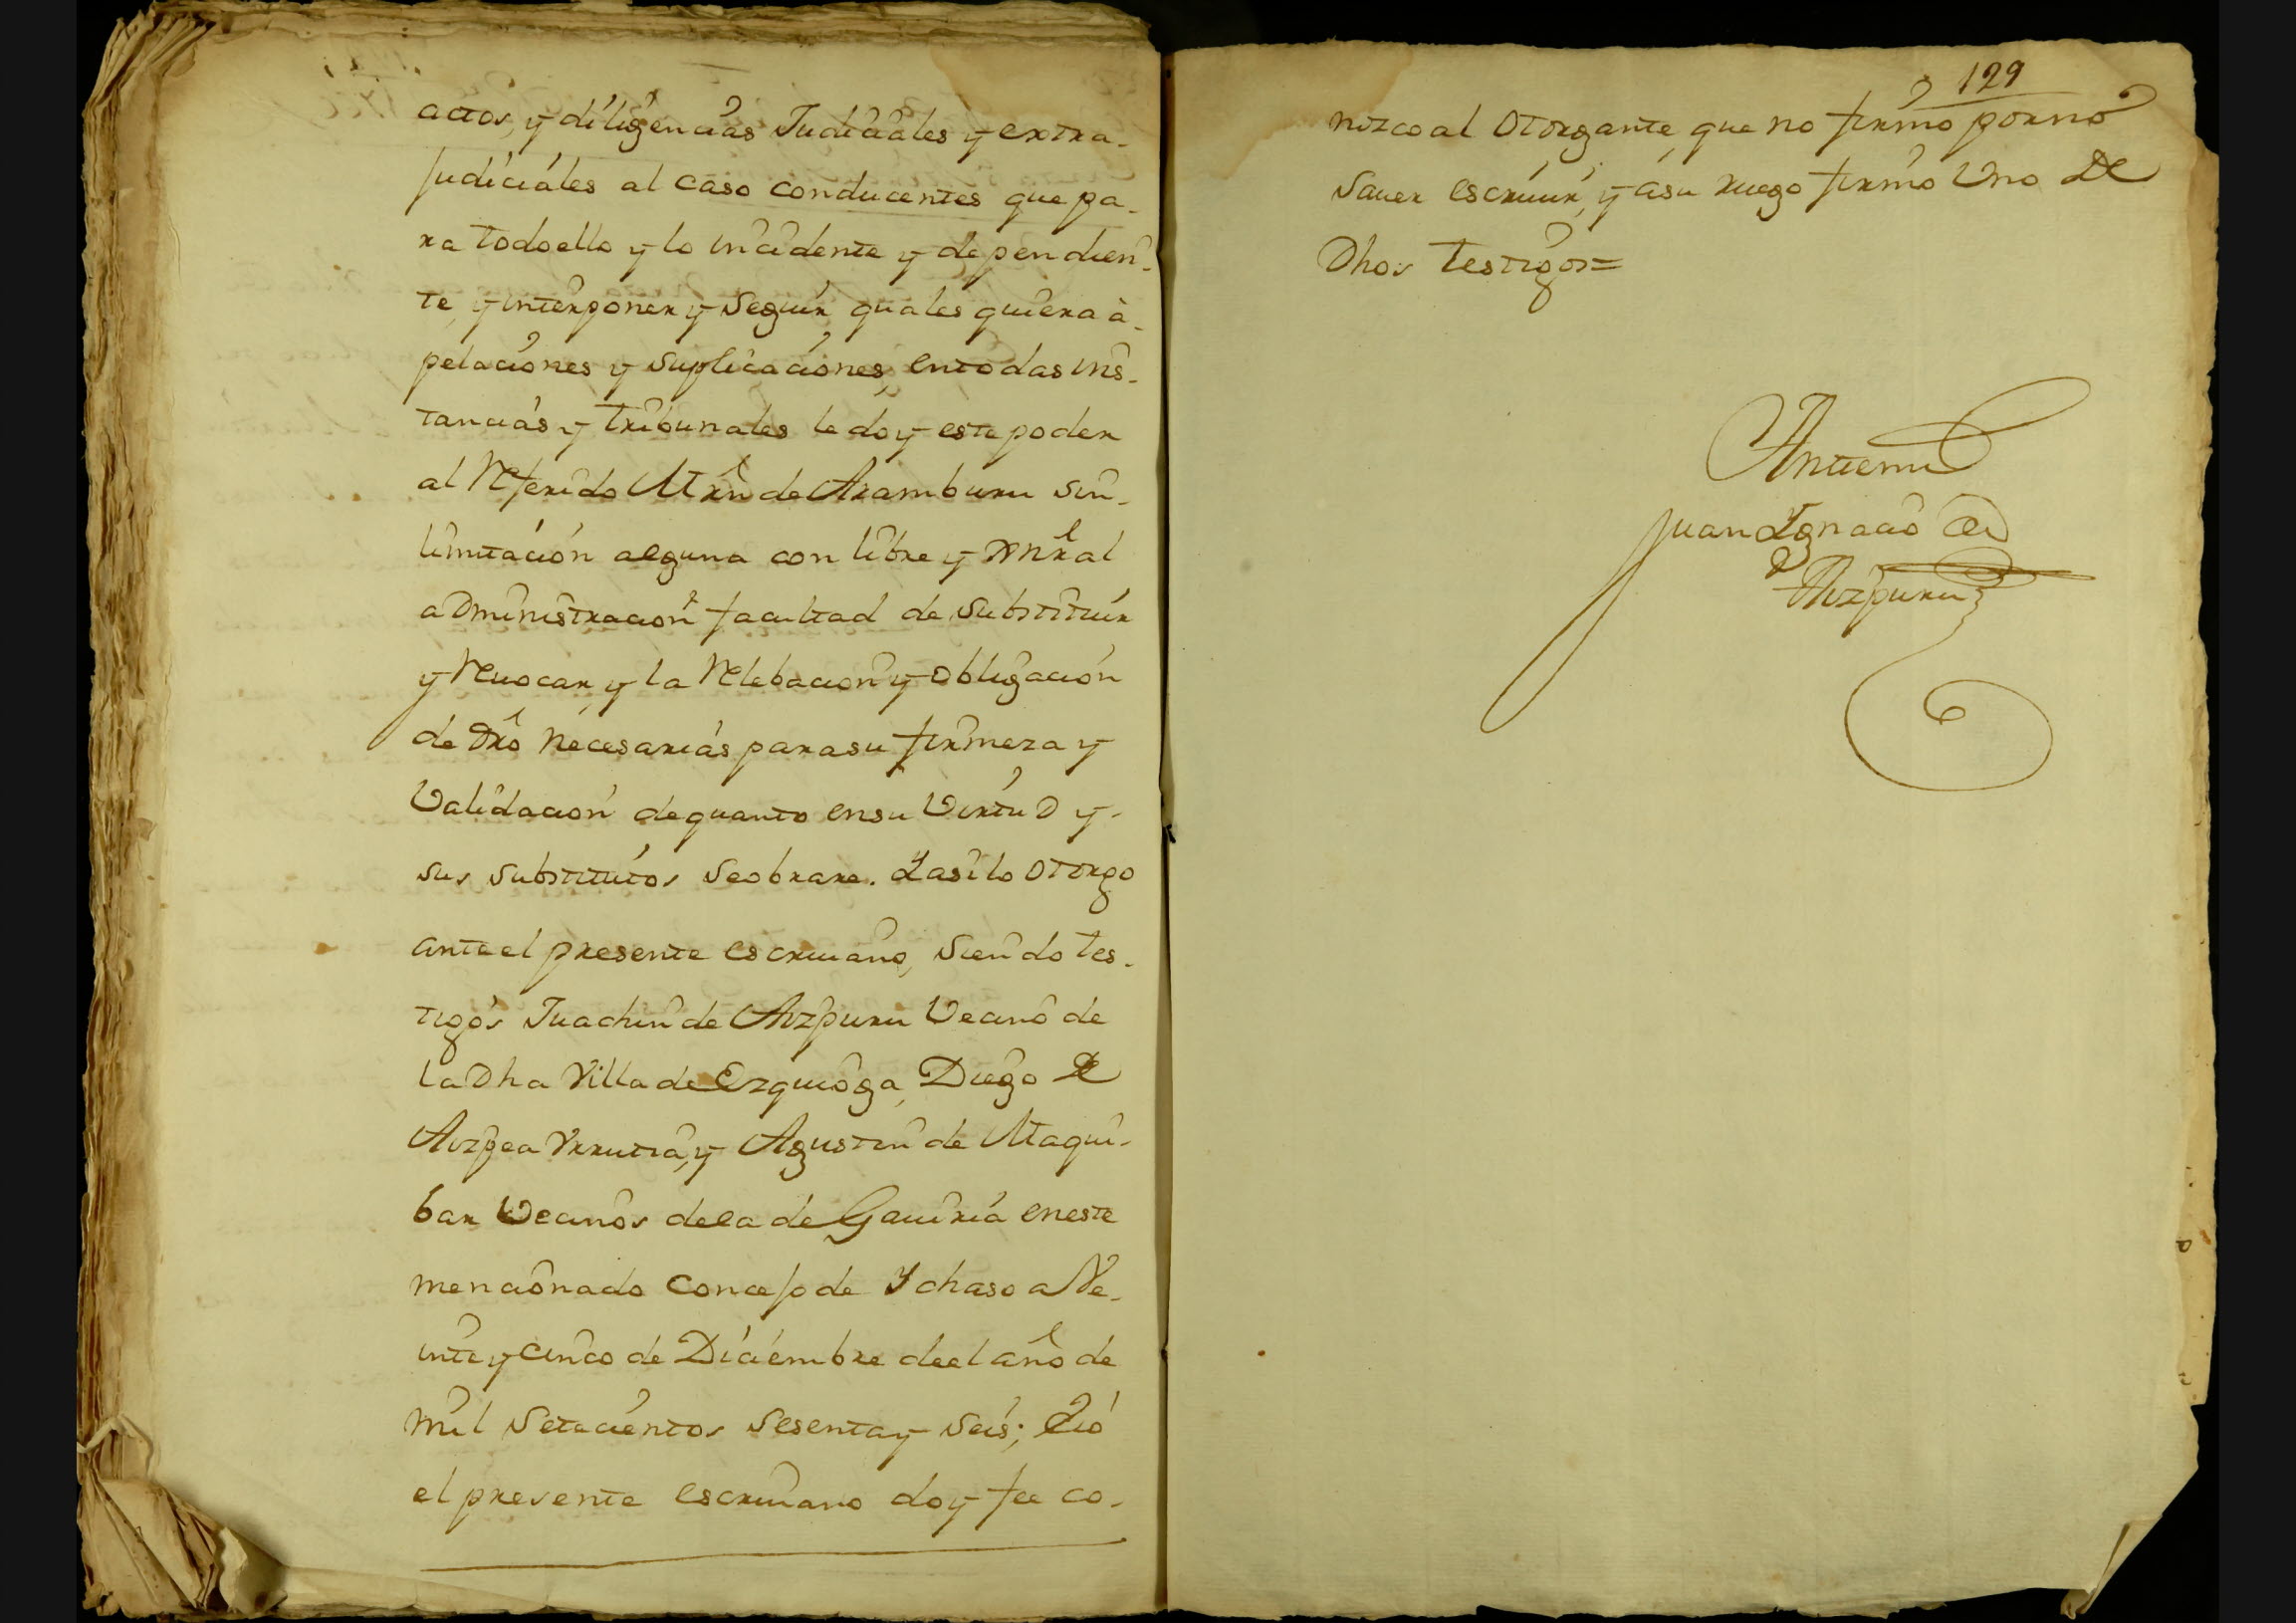 actos, y diligencias Judiciales y extra-
judiciales al caso conducentes que pa-
ra todo ello y lo incidente y dependien-
te, y interponer y seguir quales quiera a-
pelaciones y suplicaciones, en todas ins-
tancias y tribunales le doy este poder
al Referido Mrn de Aramburu sin-
limitación alguna con libre y gnral
administracion facultad de substituir
y Reuocar, y la Relebacion y obligación
de dro necesarias para su firmeza y
Validacion de quanto en su Virtud y-
sus substitutos se obrare. Y asi lo otorgo
ante el presente escriuano, siendo tes-
tigos Juachin de Aizpuru Vecino de
la Dha Villa de Ezquioga, Diego de
Aizpea Vrrutia, y Agustin de Maqui-
bar Vecinos de la de Gauiria en este
mencionado Concejo de Ychaso a Ve-
inte y cinco de Diciembre de el año de
mil setecientos sesenta y seis; e Yo
el presente escriuano doy fee co-
129
nozco al otorgante, que no firmo por no
sauer escriuir, y a su ruego firmo Uno de
Dhos testigos=
Antemi
Juan Ygnacio de
Aizpuru